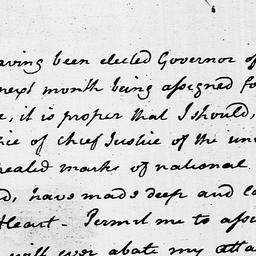 aving been elected Governor of
next month being assigned fo
e, it is proper that I should,
ice of chief Justice of the uni
repealed marks of national
d, have made deep and la
Heart - Permit me to assu
will ever abate my atta